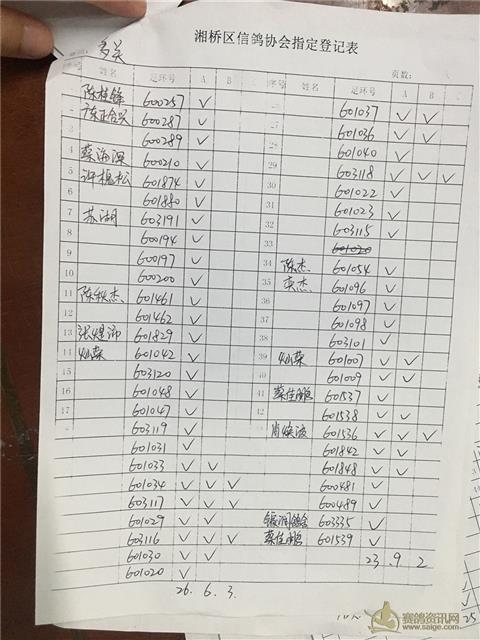 湘桥区信鸽协会指定登记表
多关 页数:
姓名 足环号 A B C 序号 姓名 足环号 A B C
陈桂锋 600257 ✓ 601037 ✓ ✓
600287 ✓ 601036 ✓ ✓
600289 ✓ 28 601040 ✓
4 蔡海深 600210 ✓ 29 603118 ✓ ✓ ✓
5 许槐松 601874 ✓ 30 601022 ✓
6 601880 ✓ 31 601023 ✓
7 苏湖 603191 ✓ 32 603115 ✓
8 600194 ✓ 33 601020
9 600197 ✓ 34 陈杰 601054 ✓
10 600200 ✓ 35 奕杰 601096 ✓
11 陈秋杰 601461 ✓ 601097 ✓
12 601462 ✓ 601098 ✓
13 601829 ✓ 603101 ✓
14 灿荣 601042 ✓ 39 灿荣 601007 ✓ ✓
15 603120 ✓ 40 601009 ✓ ✓
16 601048 ✓ 41 蔡佳鹏 601537 ✓
17 601047 ✓ 42 601538 ✓ ✓
603119 ✓ 肖焕波 601536 ✓ ✓ ✓
601031 ✓ 601842 ✓ ✓
601033 ✓ ✓ 601848 ✓ ✓
601034 ✓ ✓ ✓ 600481 ✓
603117 ✓ ✓ ✓ 600489 ✓
601029 ✓ ✓ 603335 ✓
603116 ✓ ✓ ✓ 蔡佳鹏 601539 ✓
601030 ✓ ✓ 23.9.2
601020 ✓
26.6.3.
赛鸽资讯网
www.saige.com
25